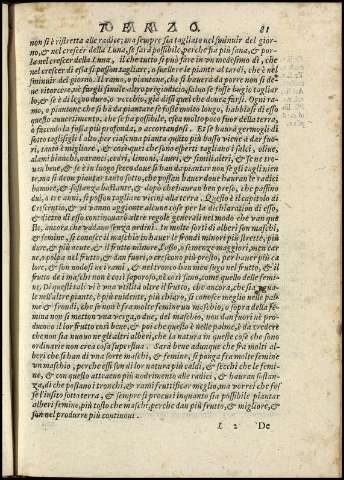 TERZO. 81
non si è ristretta alle radice; ma sempre sia tagliato nel sminuir del gior-
no, & nel crescer della Luna, se sarà possibile, perche fa più sana, & por-
la nel crescer della Luna, il che tutto si può fare in un medesimo dì, che
nel crescer di essa si posson tagliare, o suellere le piante al tardi, che è nel
sminuir del giorno. Il ramo, o piantone, che si haurà da porre non si de-
ue ritorcere, nè furgli simile altro pregiudicio, saluo se fosse luogo tagliar
lo, & se è di legno duro, o vecchio, già dissi quel che douea farsi. Ogni ra-
mo, o piantone che si ha da piantare se fosse molto lungo, habbiasi di esso
questo auuertimento, che se sia possibile, esca molto poco fuor della terra,
o facendo la fossa più profonda, o accortandosi. Et se haurà germogli di
sotto taglisigli l'alto, per ciascuna pianta quãto più basso viene è dar fuo-
ri, tanto è migliore, & così quei che sono esperti tagliano i salci, oliue,
alami bianchi, naranci, cedri, limoni, lauri, & simili altri, & se ne tro-
uan bene, & se è in luogo secco doue si han da piantar non se gli tagli nien
te, ma si denn piantar tanto sotto, che possan hauer doue hauran le radici
humore, & sostanza bastante, & dopo che hauran ben preso, che passino
dui, o tre anni, si posson tagliare vicini alla terra. Questo è il capitolo di
Crescentio, & vi vanno aggionte alcune cose per la dichiaration di esso,
& dietro di esso continouarò altre regole generali nel modo che van que
ste, ancora che vadano senza ordini. In molte sorti di alberi son maschi, &
femine, si conosce il maschio in hauer le frondi minori più strette, più
dure, & più acute, & il frutto minore, l'osso, o semenze maggiori, men car
ne, o polpa nel frutto, & dan fuori, o crescono più presto, per hauer più ca
lore, & son nodosi ne i rami, & nel tronco han men sugo nel frutto, & il
frutto de i maschi non è così saporoso, nè così sano, come quello delle femi-
ne. Di questi tali vi è una vtilità oltre il frutto, che ancora, che sia
nell'altre piante, è più euidente, & più chiaro, si conosce meglio nelle pal-
me & frondi, che fanno è sia molte femine un maschio, o sopra della fe-
mina non si metton una verga, o due, del maschio, non dan fuori nè pro-
ducono il lor frutto così bene, & poi che questa è nelle palme, è da credere
che non sia nuouo ne gli altri alberi, che la natura in quelle cose che sono
ordinarie non crea cosa superflua. Sarà brieue aduenque che fra molti al-
beri che si han di vna sorte maschi, & femine, si ponga fra molte femine
vn maschio, perche essi son di lor natura più caldi, & secchi che le femi-
ne, & con questo attraeno più nodrimento alle radici, & hauran sostan-
za, di che possano i tronchi, & rami fruttificar meglio, ma vorrei che fos
se l'insito sotto terra, & sempre si procuri inquanto sia possibile piantar
alberi femine, più tosto che maschi, perche dan più frutto, & migliore, &
son nel produrre più continoui.
L 2 De